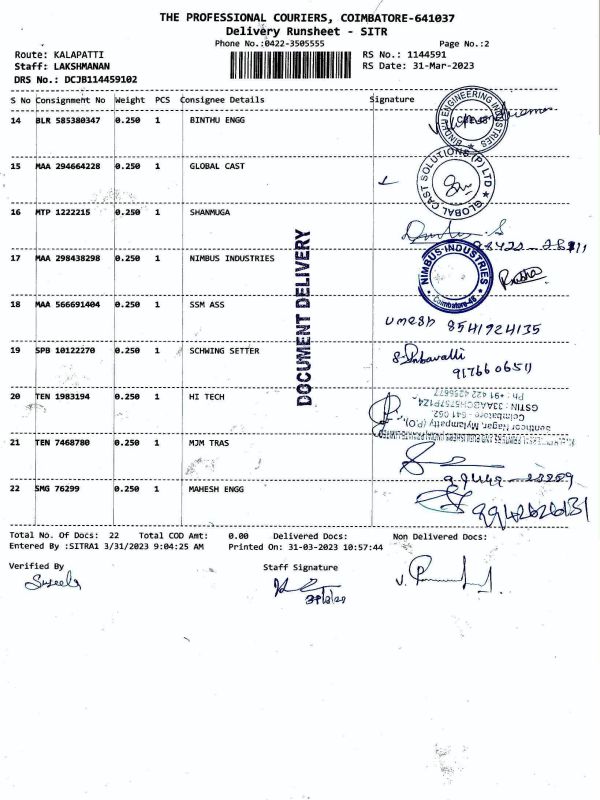 THE PROFESSIONAL COURIERS, COIMBATORE-641037
Delivery Runsheet - SITR
Phone No.:0422-3505555 Page No.:2
Route: KALAPATTI RS No.: 1144591
Staff: LAKSHMANAN RS Date: 31-Mar-2023
DRS No.: DCJB114459102
S No Consignment No Weight PCS Consignee Details Signature
14 BLR 585380347 0.250 1 BINTHU ENGG
BINDHU ENGINEERING INDUSTRIES
15 MAA 294664228 0.250 1 GLOBAL CAST
GLOBAL CAST SOLUTIONS (P) LTD
16 MTP 1222215 0.250 1 SHANMUGA
17 MAA 298438298 0.250 1 NIMBUS INDUSTRIES
NIMBUS INDUSTRIES
Coimbatore-48
DOCUMENT DELIVERY
18 MAA 566691404 0.250 1 SSM ASS
umesh 8541924135
19 SPB 10122270 0.250 1 SCHWING SETTER
9176606511
20 TEN 1983194 0.250 1 HI TECH
Ph : +91 422 4256677
GSTIN : 33AABCH5757P1Z4
Coimbatore - 641 062.
Senthiloor Nagar, Mylampatty (P.O),
21 TEN 7468780 0.250 1 MJM TRAS
22 SMG 76299 0.250 1 MAHESH ENGG
9942626131
Total No. Of Docs: 22 Total COD Amt: 0.00 Delivered Docs: Non Delivered Docs:
Entered By :SITRA1 3/31/2023 9:04:25 AM Printed On: 31-03-2023 10:57:44
Verified By Staff Signature
Suseela